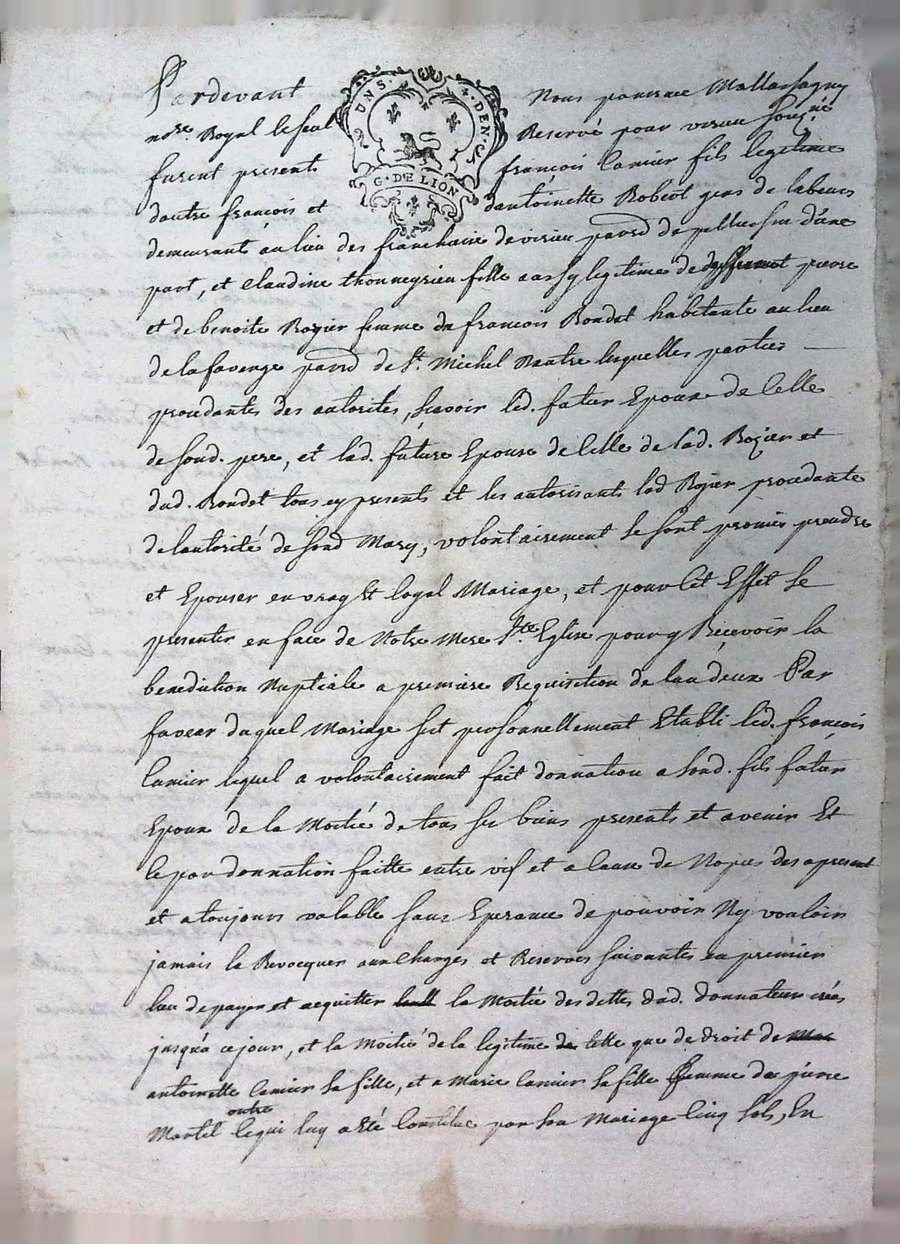 Pardevant Nous
UN S. 4. DEN.
G. DE LION
nore. Royal le seul Reservé pour virieu soug.né
furent present françois Camier fils legitime
dautre françois et dantoinette Robert gens de labeurs
demeurant au lieu des franchain de virieu parr.d de pellussin d'une
part, et Claudine thonneyrieu fille aussy legitime de pierre
et de benoite Rozier femme du françois Rondet habitante au lieu
de la favenge parr.d de St. Michel Dautre lesquelles parties
procedantes des autorités, scavoir led. futur Epoux de Celle
de sond. pere, et lad. future Epouse de Celle de lad. Rozier et
dud. Rondet tous cy presents et les autorisants lad Rozier procedante
de lautorité de sond Mary, volontairement se sont promis prendre
et Epouser en vray et loyal Mariage, et pour Cet Effet se
presenter en face de Notre Mere Ste Eglise pour y Recevoir la
benediction Nuptiale a premiere Requisition de lun deux Par
faveur duquel Mariage sest personnellement Etabli led. françois
Camier lequel a volontairement fait donnation a sond. fils futur
Epoux de la Moitié de tous ses biens presents et avenir Et
ce par donnation faitte entre vif et a Cause de Nopces des apresent
et atoujours valable sans Esperance de pouvoir Ny vouloir
jamais la Revocquer aux Charges et Reserves suivantes en premier
lieu de payer et acquitter la Moitié des dettes dud. donnateur crées
jusqu'a ce jour, et la Moitié de la legitime telle que de droit de
antoinette Camier sa fille, et a Marie Camier sa fille femme de pierre
Martel outre ce qui luy a été Constitué par son Mariage Cinq sols, En